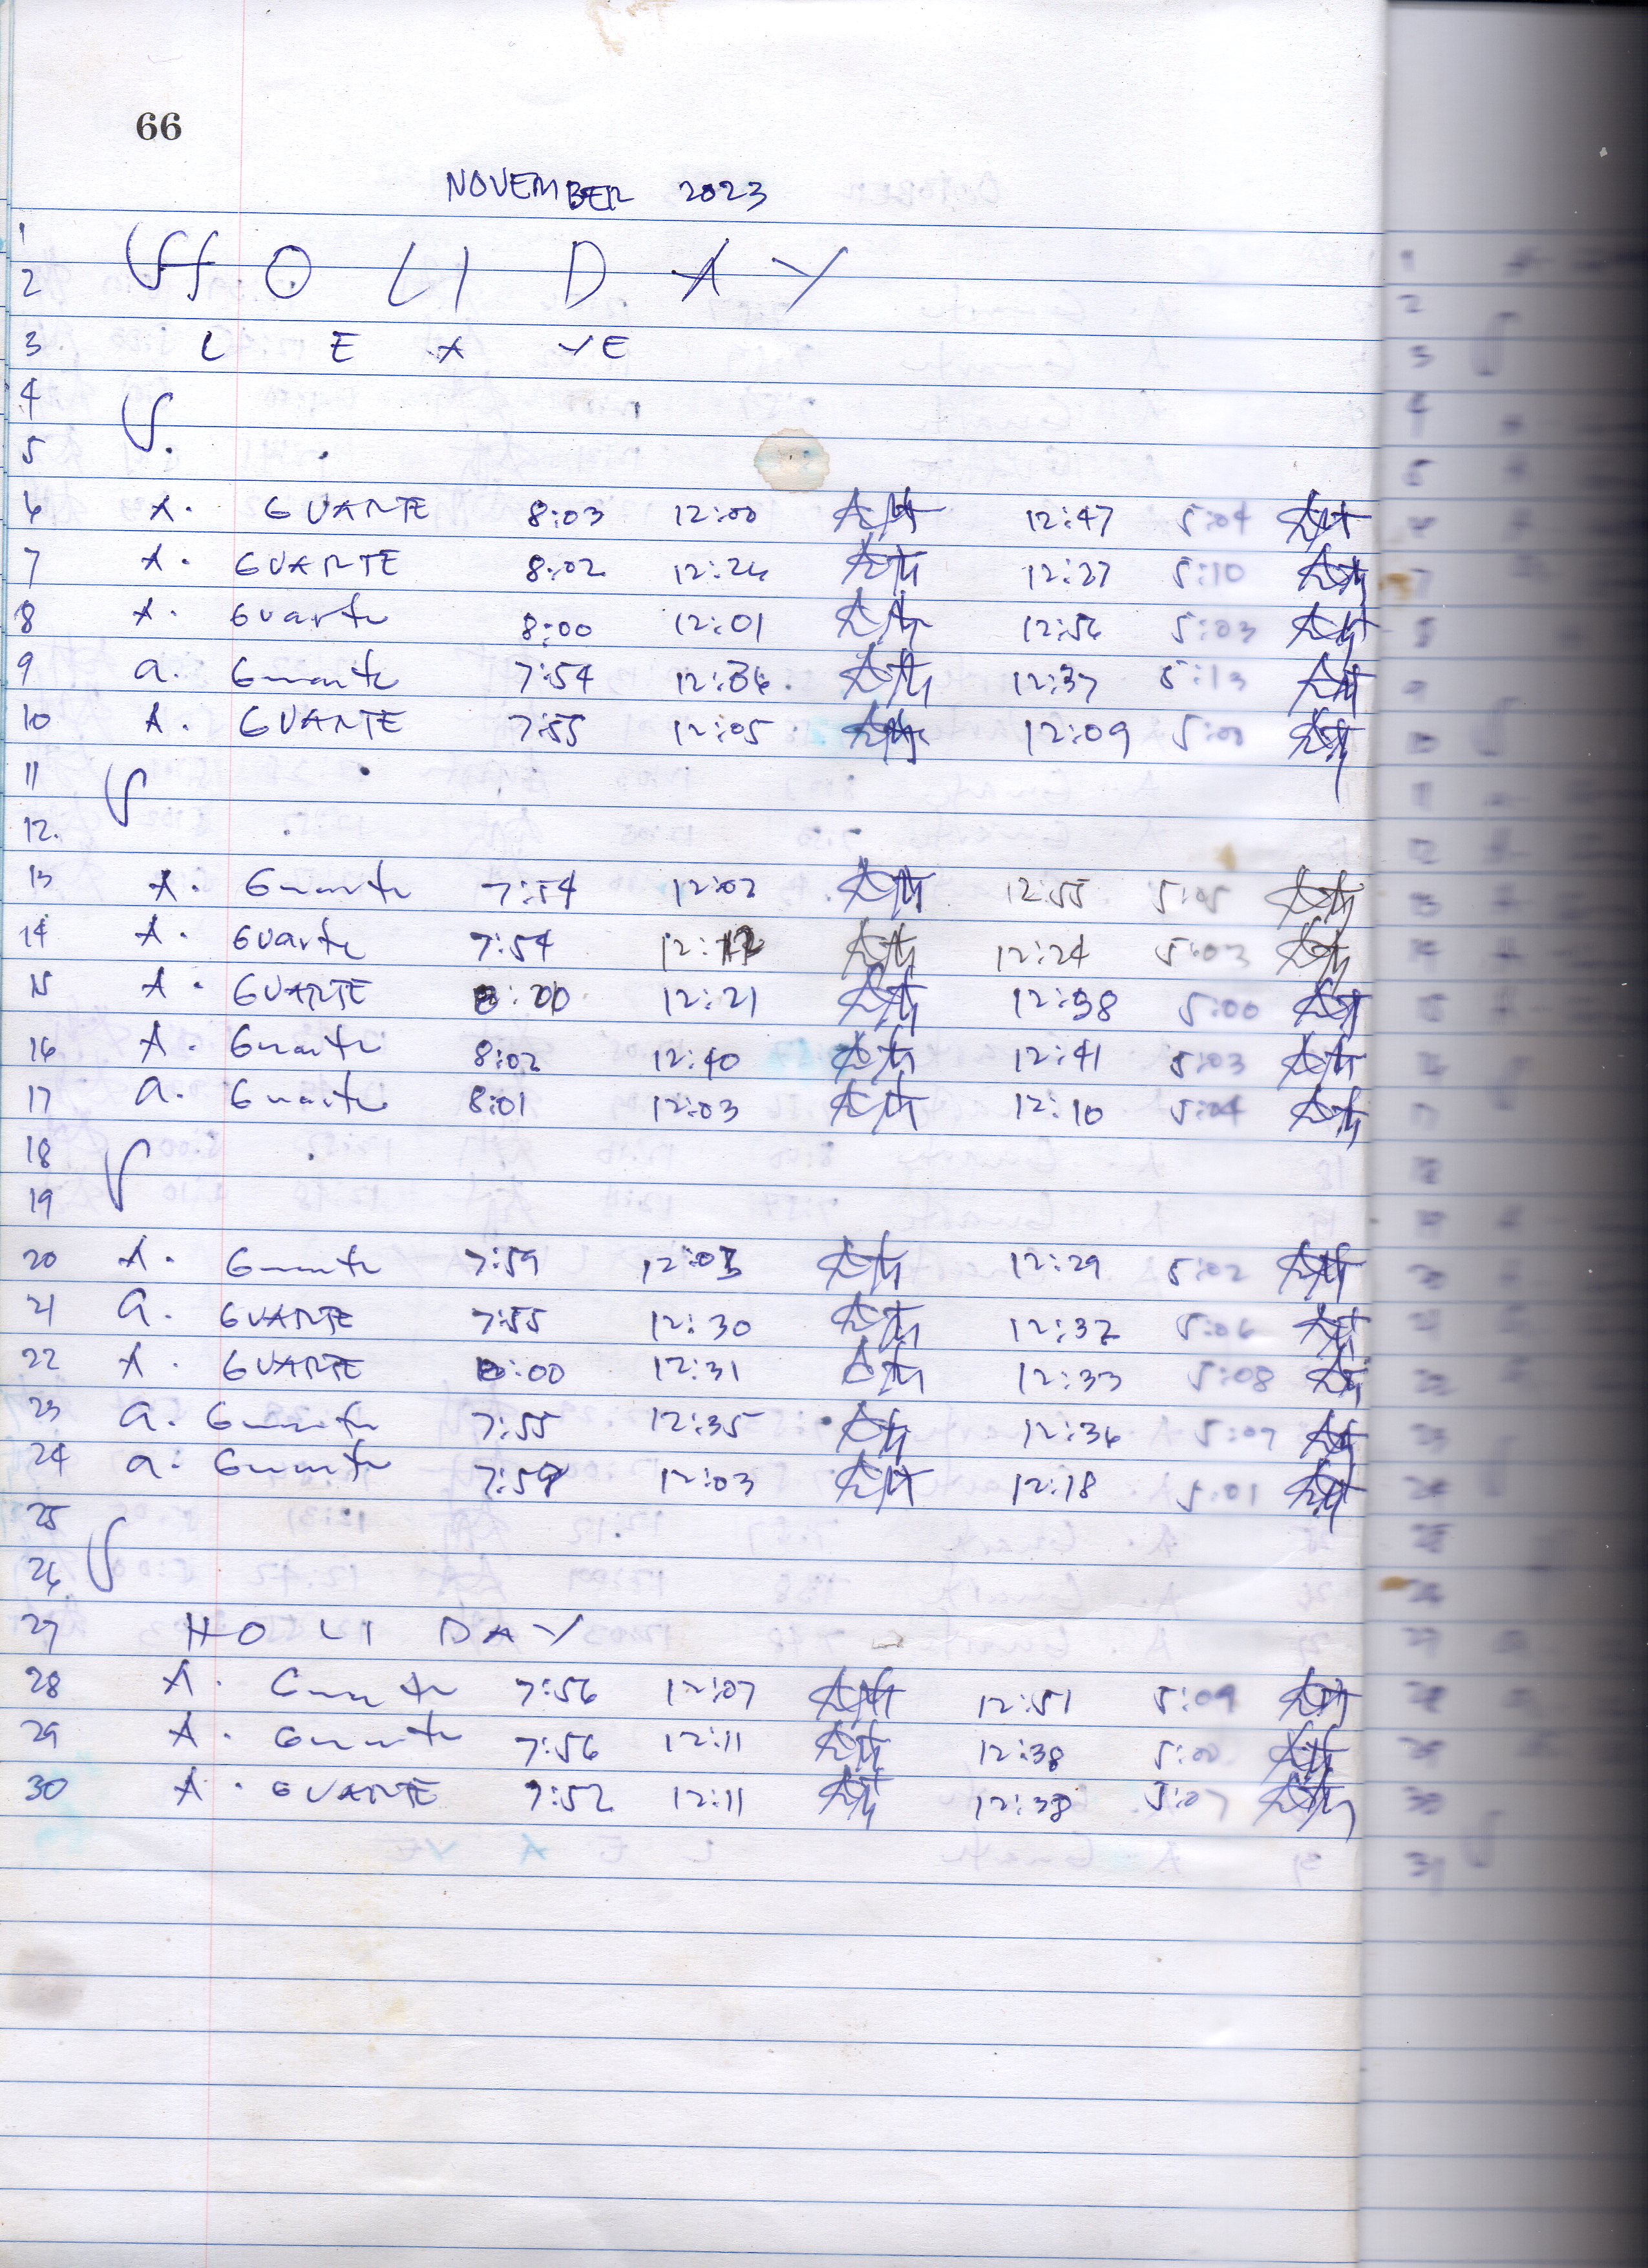 66
NOVEMBER 2023
1
2 HOLIDAY
3 LEAVE
4
5
6 A. GUARTE 8:03 12:00 12:47 5:04
7 A. GUARTE 8:02 12:26 12:27 5:10
8 A. Guarte 8:00 12:01 12:56 5:03
9 a. Guarte 7:54 12:36 12:37 5:13
10 A. GUARTE 7:55 12:05 12:09 5:00
11
12.
13 A. Guarte 7:54 12:02 12:55 5:05
14 A. Guarte 7:54 12:24 5:03
15 A. GUARTE 8:00 12:21 12:38 5:00
16 A. Guarte 8:02 12:40 12:41 5:03
17 a. Guarte 8:01 12:03 12:10 5:04
18
19
20 A. Guarte 7:59 12:03 12:29 5:02
21 a. GUARTE 7:55 12:30 12:32 5:06
22 A. GUARTE 8:00 12:31 12:33 5:08
23 a. Guarte 7:55 12:35 12:36 5:07
24 a. Guarte 12:03 12:18 5:01
25
26
27 HOLIDAY
28 A. Guarte 7:56 12:07 12:51 5:09
29 A. Guarte 7:56 12:11 12:38 5:00
30 A. GUARTE 7:52 12:11 12:38 5:07